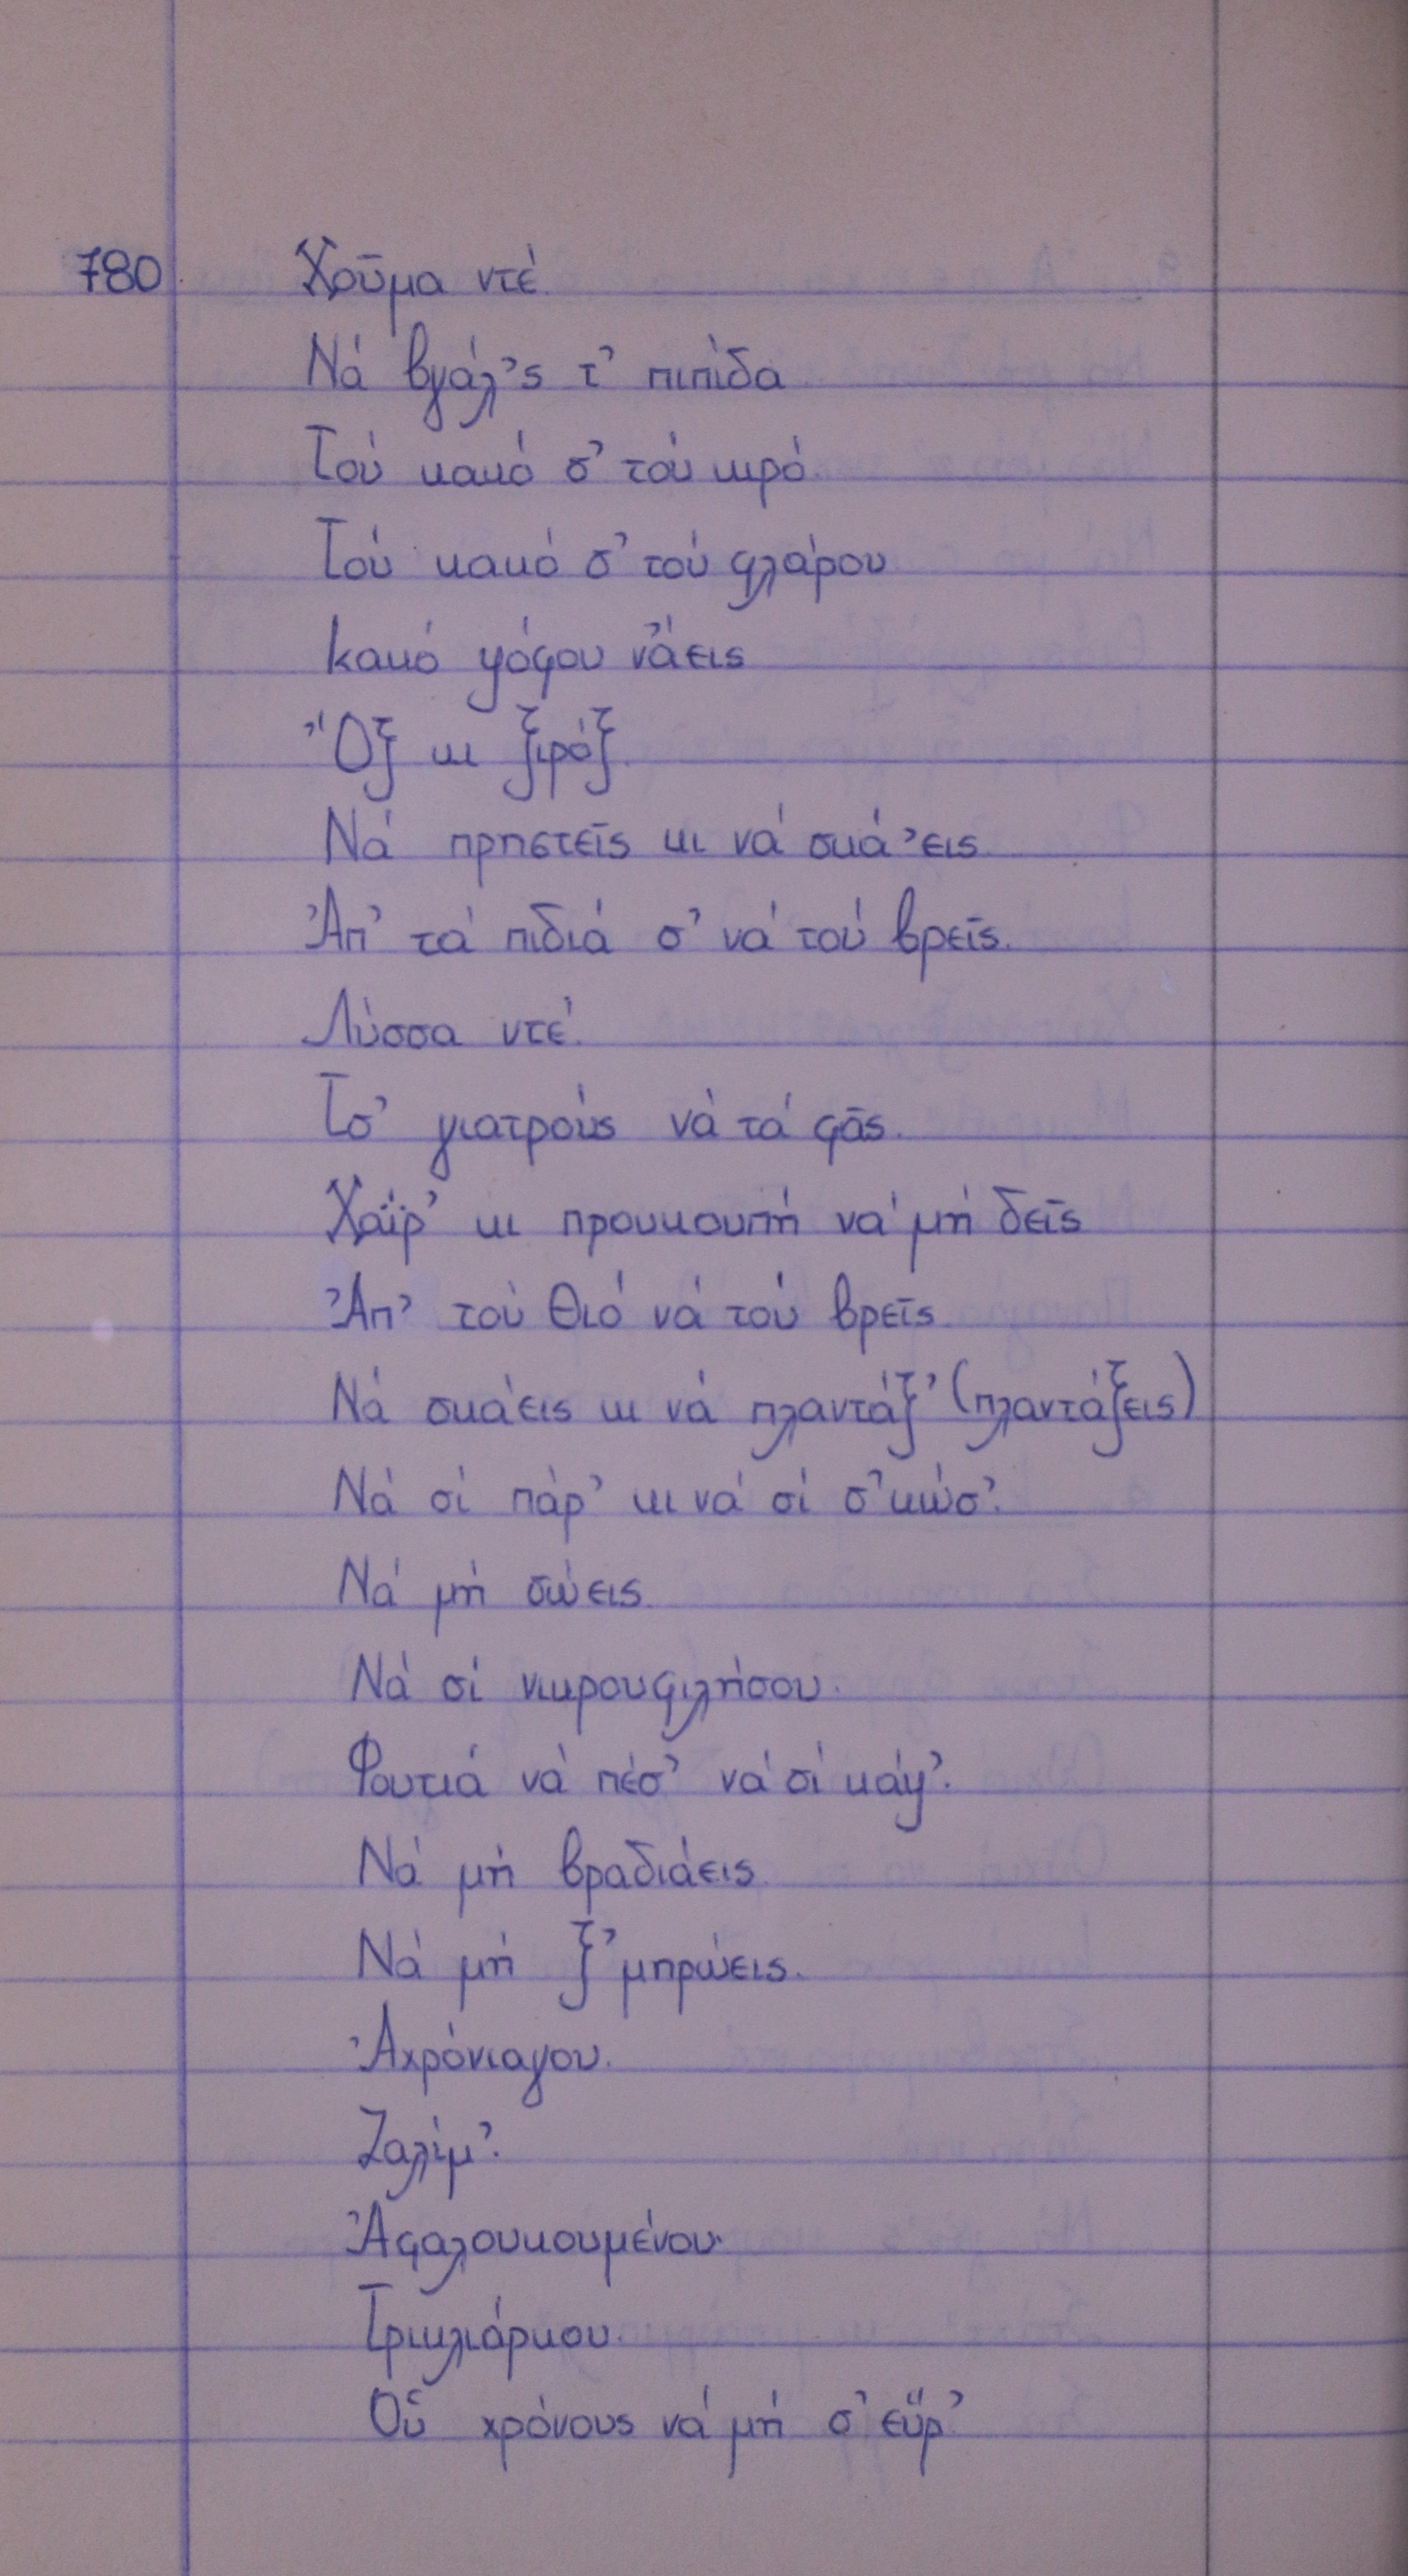 780 Χοῦμα ντέ.
Νά βγάλ'ς τ' πιπίδα
Τού κακό σ' τού κιρό.
Τού κακό σ' τού φλάρου
Κακό ψόφου νἄεις
Ὄξ κι ξιρόξ.
Νά πρηστεῖς κι νά σκά'εις.
Ἀπ' τά πιδιά σ' νά τού βρεῖς.
Λύσσα ντέ.
Τσ' γιατρούς νά τά φᾶς.
Χαΐρ' κι προυκουπή νά μή δεῖς
Ἀπ' τού Θιό νά τού βρεῖς.
Νά σκάεις κι νά πλαντάξ' (πλαντάξεις)
Νά σί πάρ' κι νά σί σ'κώσ'.
Νά μή σώεις.
Νά σί νικρουφιλήσου.
Φουτιά νά πέσ' νά σί κάψ'.
Νά μή βραδιάεις.
Νά μή ξ'μπρώεις.
Ἀχρόνιαγου.
Ζαλίμ'.
Ἀφαλουκουμένου.
Τρικλιάρκου.
Οὗ χρόνους νά μή σ' εὕρ'